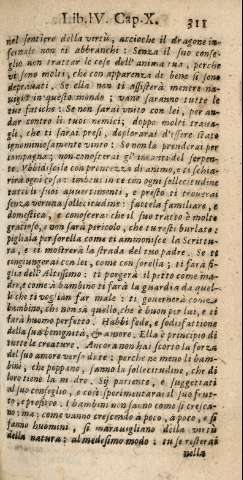 Lib. IV. Cap. X. 311
nel sentiero della virtù, accioche il dragone in-
fernale non ti abbranchi: Senza il suo conse-
glio non trattar le cose dell'anima tua, perche
vi sono molti, che con apparenza di bene si sono
depravati. Se ella non ti assisterà mentre na-
vighi in questo mondo; vane saranno tutte le
tue fatiche: Se non sarai unito con lei, per an-
dar contro li tuoi nemici; doppo molti trava-
gli, che ti sarai presi, deplorarai d'essere stato
ignominiosamente vinto: Se non la prenderai per
compagna; non conoscerai gl'incanti del serpen-
te. Vbbidiscila con prontezza di animo, e ti schia-
rirà ogni cosa: imbeviti con ogni sollecitudine
tutti li suoi avvertimenti, e presto ti troverai
senza veruna sollecitudine: fattela familiare, e
domestica, e conoscerai che il suo tratto è molto
gratioso, e non sarà pericolo, che tu resti burlato:
pigliala per sorella come ti ammonisce la Scrittu-
ra, e ti mostrerà la strada del tuo padre. Se ti
congiungerai con lei, come con sorella; ti farà fi-
glia dell'Altissimo: ti porgerà il petto come ma-
dre, e come à bambino ti farà la guardia da quel-
li che ti voglian far male: ti governerà come
bambino, che non sà quello, che è buon per lui, e ti
farà huomo perfetto. Habbi fede, e sodisfattione
della sua benignità, & amore. Ella è principio di
tutte le creature. Ancora non hai scorto la forza
del suo amore verso di te: perche ne meno li bam-
bini, che poppano, sanno la sollecitudine, che di
loro tiene la madre. Sij patiente, e suggettati
al suo conseglio, e così sperimentarai il suo frut-
to, e profitto. I bambini non sanno come si cresca-
no; ma, come vanno crescendo à poco, à poco, e si
fanno huomini, si maravigliano della virtù
della natura: al medesimo modo: tu, se resterai
nella